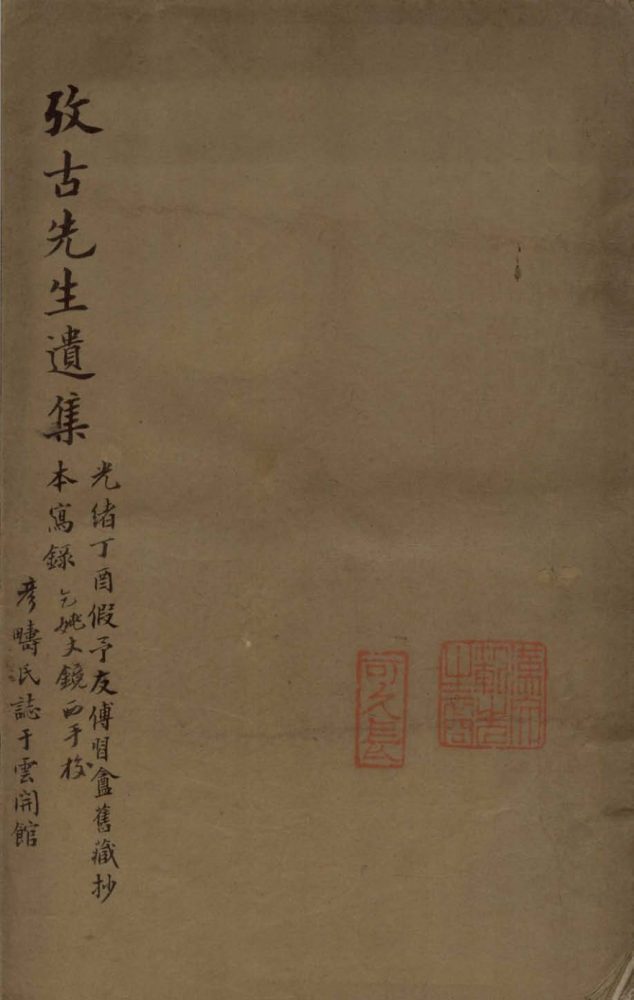 攷古先生遺集
光緒丁酉假予友傅眉盦舊藏抄
本寫錄
乞姚文鏡西手校
彥疇氏誌于雲開館